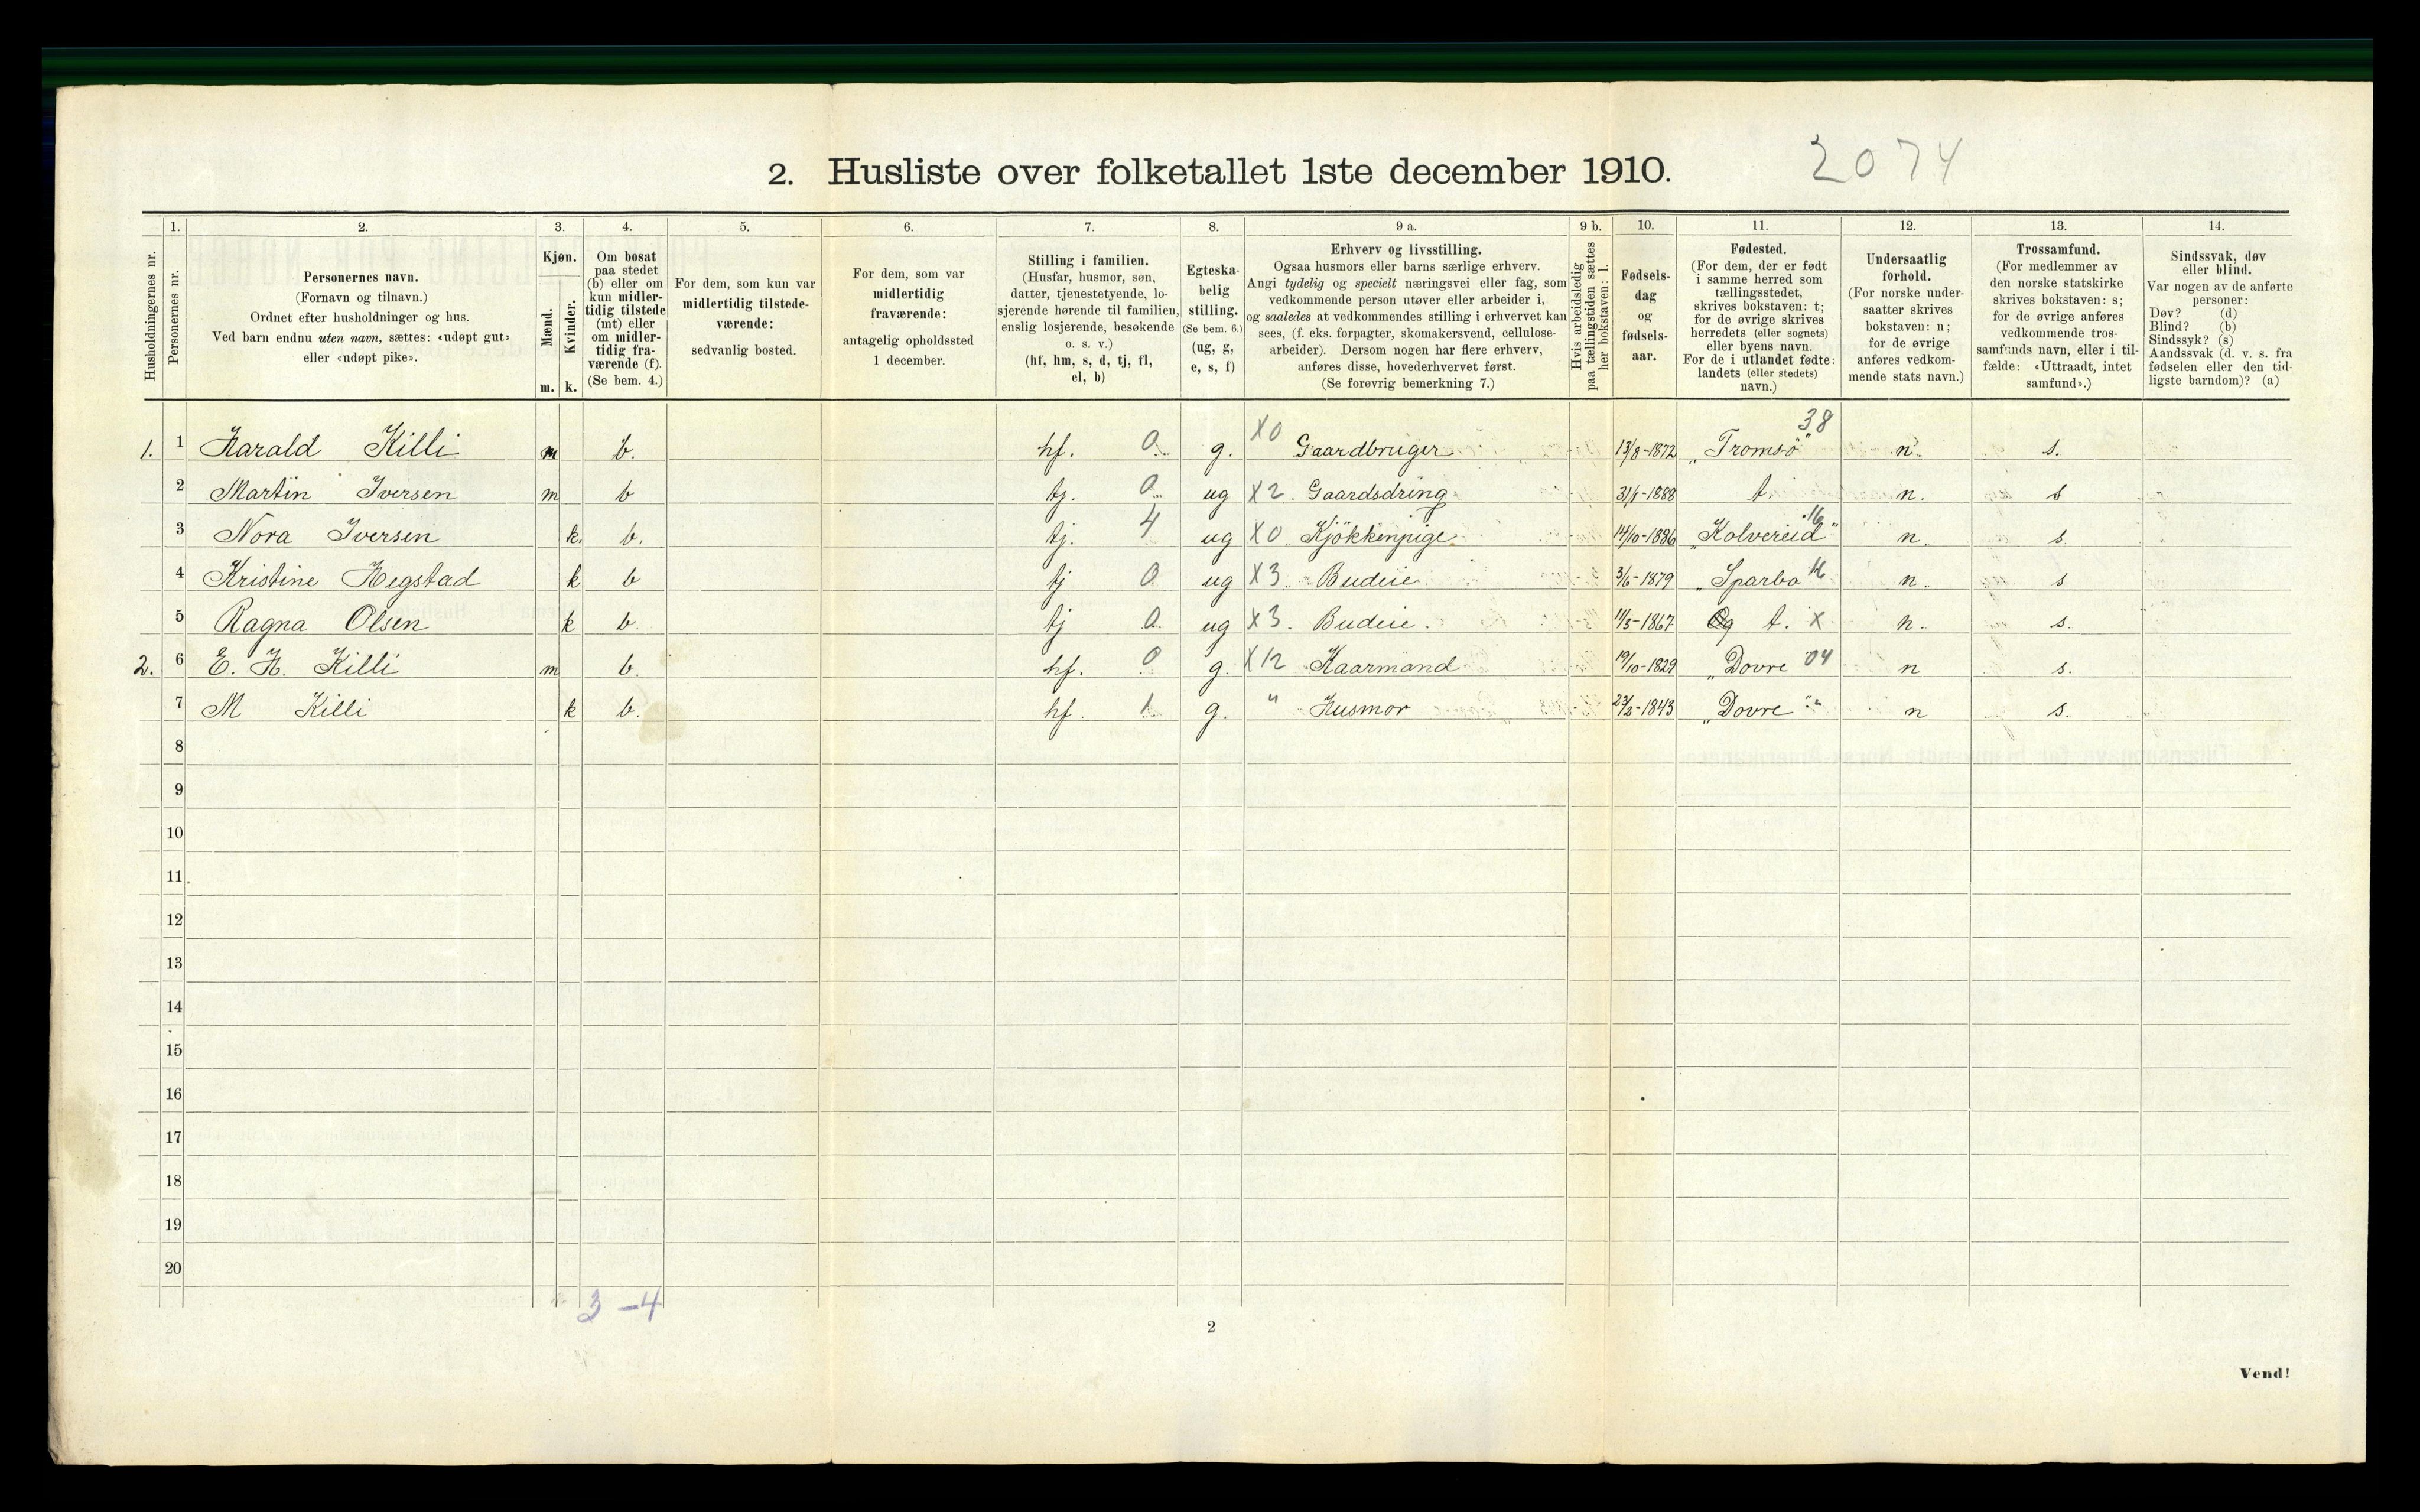 2. Husliste over folketallet 1ste december 1910.
2074
1. 2. 3. 4. 5. 6. 7. 8. 9 a. 9 b. 10. 11. 12. 13. 14.
Husholdningernes nr.
Personernes nr.
Personernes navn.
(Fornavn og tilnavn.)
Ordnet efter husholdninger og hus.
Ved barn endnu uten navn, sættes: «udøpt gut»
eller «udøpt pike».
Kjøn.
Mænd.
Kvinder.
m. k.
Om bosat
paa stedet
(b) eller om
kun midler-
tidig tilstede
(mt) eller
om midler-
tidig fra-
værende (f).
(Se bem. 4.)
For dem, som kun var
midlertidig tilstede-
værende:
sedvanlig bosted.
For dem, som var
midlertidig
fraværende:
antagelig opholdssted
1 december.
Stilling i familien.
(Husfar, husmor, søn,
datter, tjenestetyende, lo-
sjerende hørende til familien,
enslig losjerende, besøkende
o. s. v.)
(hf, hm, s, d, tj, fl,
el, b)
Egteska-
belig
stilling.
(Se bem. 6.)
(ug, g,
e, s, f)
Erhverv og livsstilling.
Ogsaa husmors eller barns særlige erhverv.
Angi tydelig og specielt næringsvei eller fag, som
vedkommende person utøver eller arbeider i,
og saaledes at vedkommendes stilling i erhvervet kan
sees, (f. eks. forpagter, skomakersvend, cellulose-
arbeider). Dersom nogen har flere erhverv,
anføres disse, hovederhvervet først.
(Se forøvrig bemerkning 7.)
Hvis arbeidsledig
paa tællingstiden sættes
her bokstaven: l.
Fødsels-
dag
og
fødsels-
aar.
Fødested.
(For dem, der er født
i samme herred som
tællingsstedet,
skrives bokstaven: t;
for de øvrige skrives
herredets (eller sognets)
eller byens navn.
For de i utlandet fødte:
landets (eller stedets)
navn.)
Undersaatlig
forhold.
(For norske under-
saatter skrives
bokstaven: n;
for de øvrige
anføres vedkom-
mende stats navn.)
Trossamfund.
(For medlemmer av
den norske statskirke
skrives bokstaven: s;
for de øvrige anføres
vedkommende tros-
samfunds navn, eller i til-
fælde: «Uttraadt, intet
samfund».)
Sindssvak, døv
eller blind.
Var nogen av de anførte
personer:
Døv? (d)
Blind? (b)
Sindssyk? (s)
Aandssvak (d. v. s. fra
fødselen eller den tid-
ligste barndom)? (a)
38
1. 1 Harald Killi m b. hf. 0 g. X0 Gaardbruger 13/8-1872 "Tromsö" n. s.
2 Martin Iversen m b tj. 0 ug X2 Gaardsdräng -1888 t. n. s
3 Nora Iversen k. b. tj. 4 ug X0 Kjökkenpige 14/10-1886 "Kolvereid" 16 n. s.
4 Kristine Hegstad k b tj 0 ug X3 Budeie 3/6-1879 "Sparbo 16 n. s
5 Ragna Olsen k b. tj 0 ug X3. Budeie. 11/5-1867 t. X n. s.
2. 6 E. H. Killi m b. hf. 0 g. X12 Kaarmand 19/10-1829 "Dovre 04 n s.
7 M Killi k b. hf. 1 g. " Husmor 23/2-1843 "Dovre " n s.
8
9
10
11
12
13
14
15
16
17
18
19
20
3-4
2
Vend!